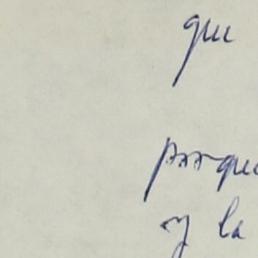 que
porque
y la